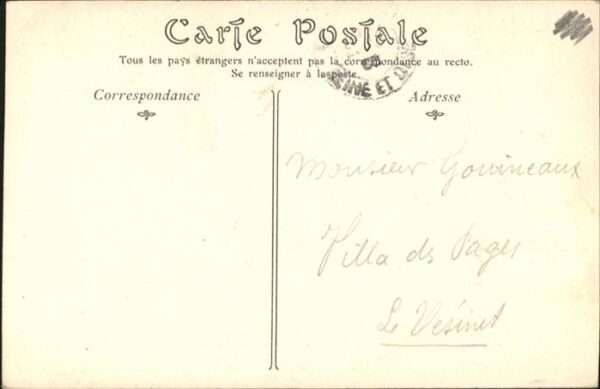 Carte Postale
Tous les pays étrangers n'acceptent pas la correspondance au recto.
Se renseigner à la poste.
SEINE ET OISE
Correspondance
Adresse
Monsieur Gouvineaux
Villa des Pages
Le Vésinet